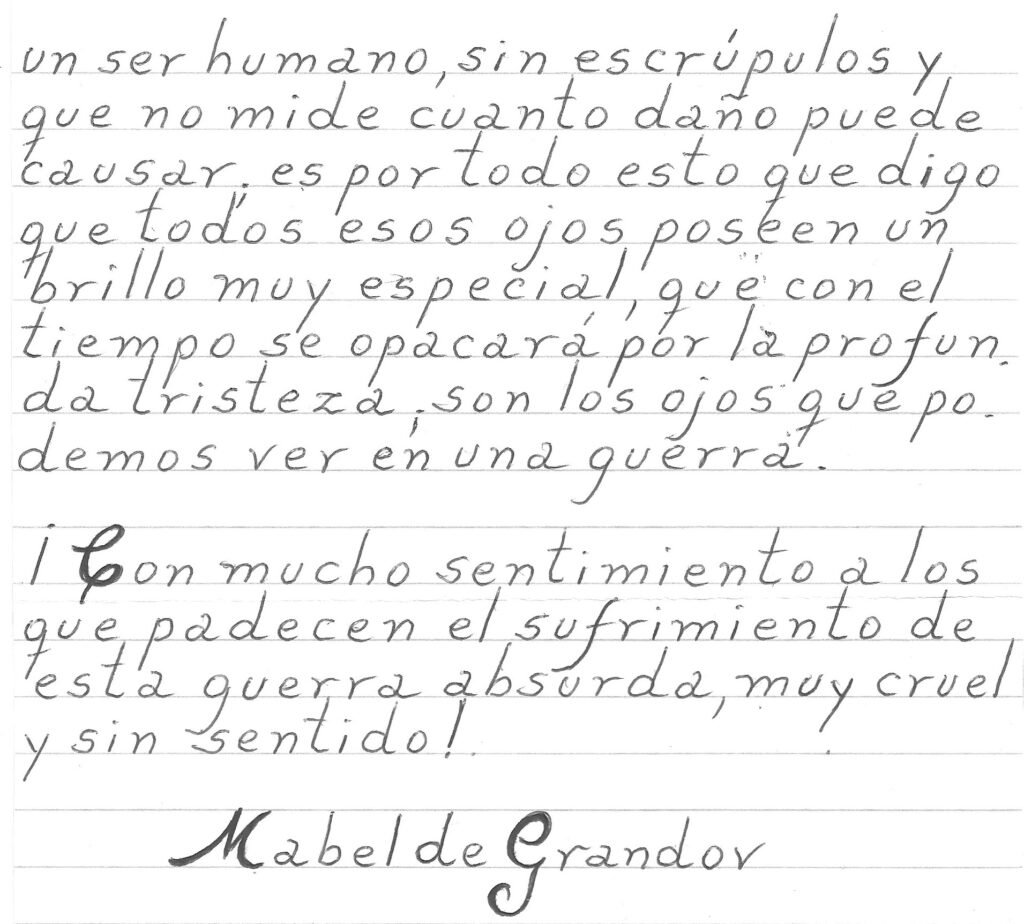 un ser humano, sin escrúpulos y
que no mide cuanto daño puede
causar; es por todo esto que digo
que todos esos ojos poseen un
brillo muy especial, que con el
tiempo se opacará por la profun-
da tristeza; son los ojos que po-
demos ver en una guerra.
¡Con mucho sentimiento a los
que padecen el sufrimiento de
esta guerra absurda, muy cruel
y sin sentido!
Mabel de Grandov